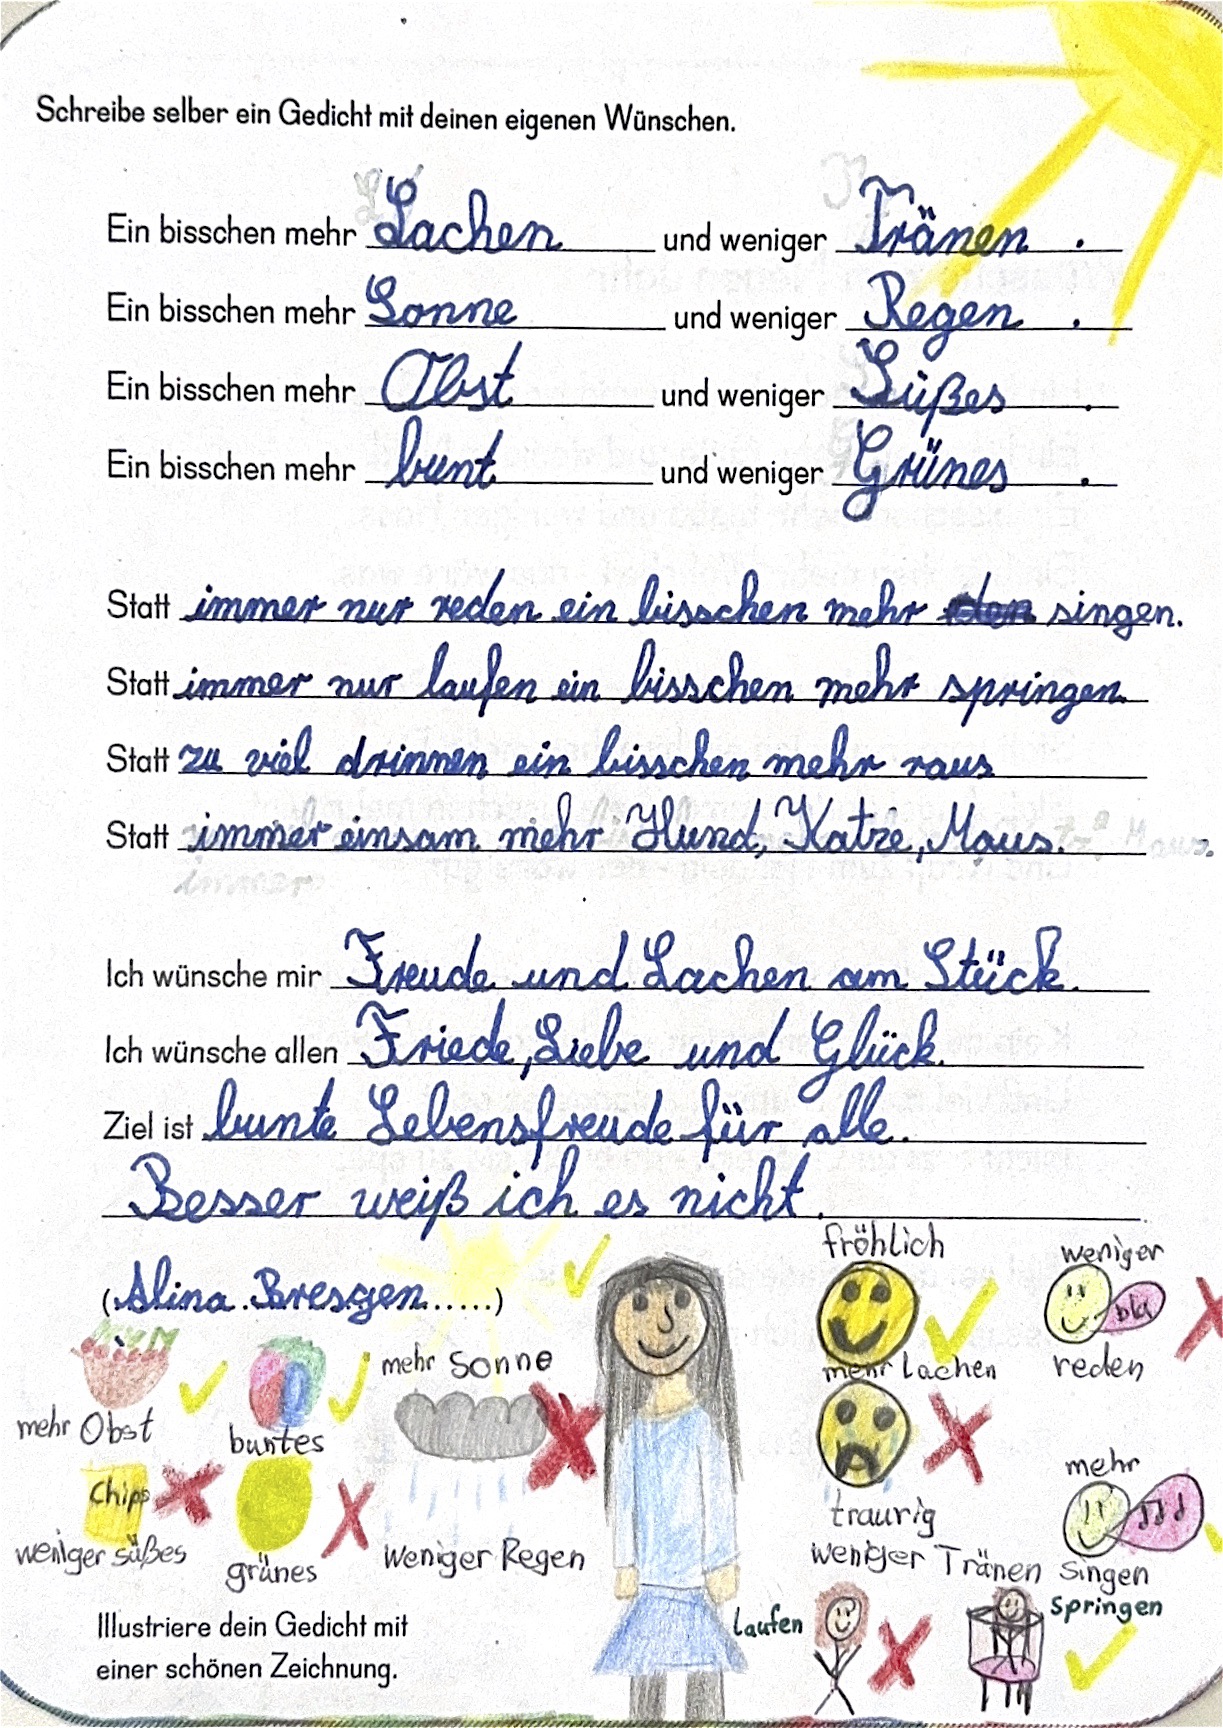 Schreibe selber ein Gedicht mit deinen eigenen Wünschen.
Ein bisschen mehr Lachen und weniger Tränen.
Ein bisschen mehr Sonne und weniger Regen.
Ein bisschen mehr Obst und weniger Süßes.
Ein bisschen mehr bunt und weniger Grünes.
Statt immer nur reden ein bisschen mehr singen.
Statt immer nur laufen ein bisschen mehr springen
Statt zu viel drinnen ein bisschen mehr raus
Statt immer einsam mehr Hund, Katze, Maus.
Ich wünsche mir Freude und Lachen am Stück.
Ich wünsche allen Friede, Liebe und Glück.
Ziel ist bunte Lebensfreude für alle.
Besser weiß ich es nicht.
(Alina Bresgen......)
fröhlich
mehr Lachen
weniger
bla
reden
mehr Obst
buntes
mehr Sonne
Chips
weniger süßes
grünes
Weniger Regen
traurig
weniger Tränen
mehr
singen
laufen
springen
Illustriere dein Gedicht mit
einer schönen Zeichnung.